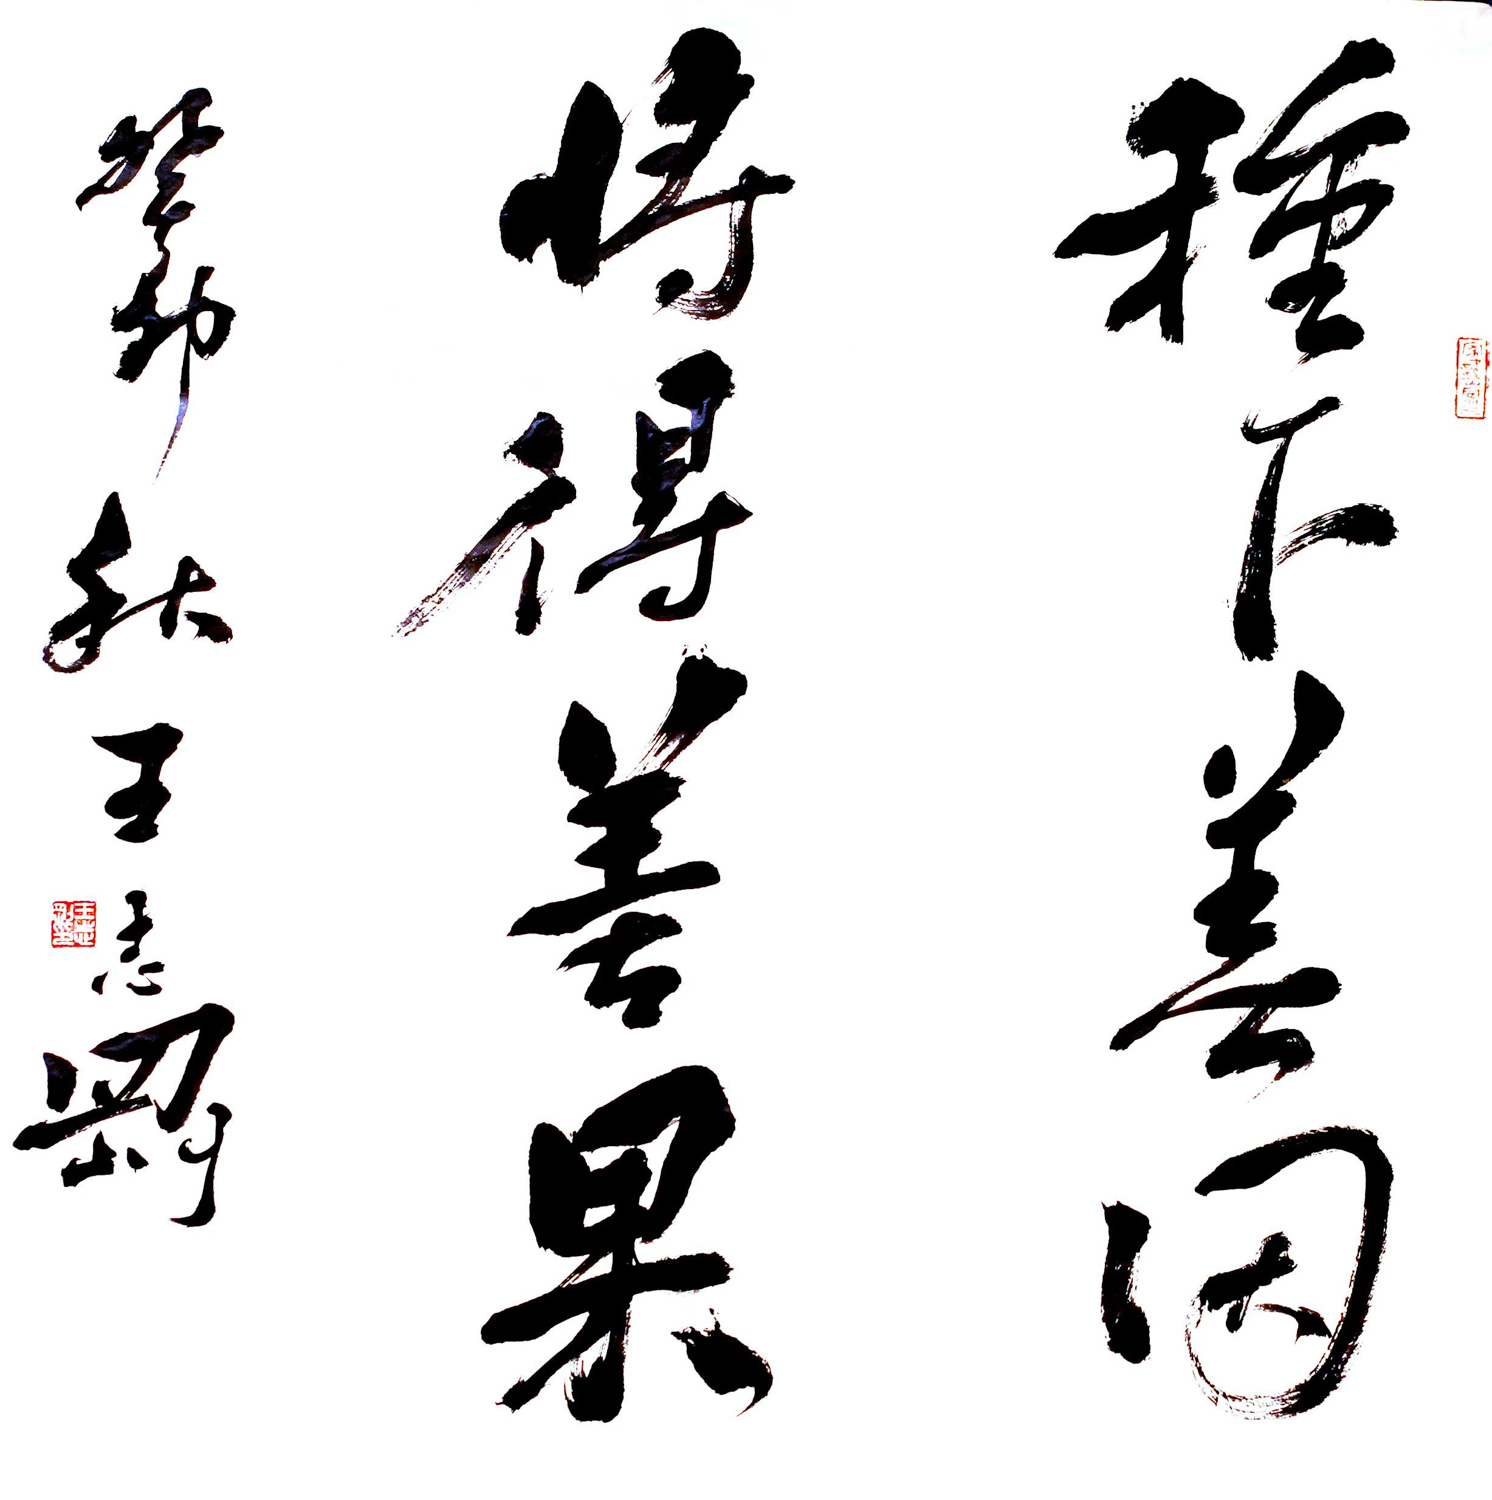 種下善因
將得善果
癸卯秋王志剛